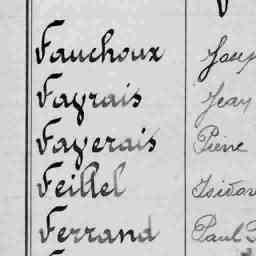 Fauchoux
Fayrais Jean
Fayerais Pierre
Feillel Isidore
Ferrand Paul